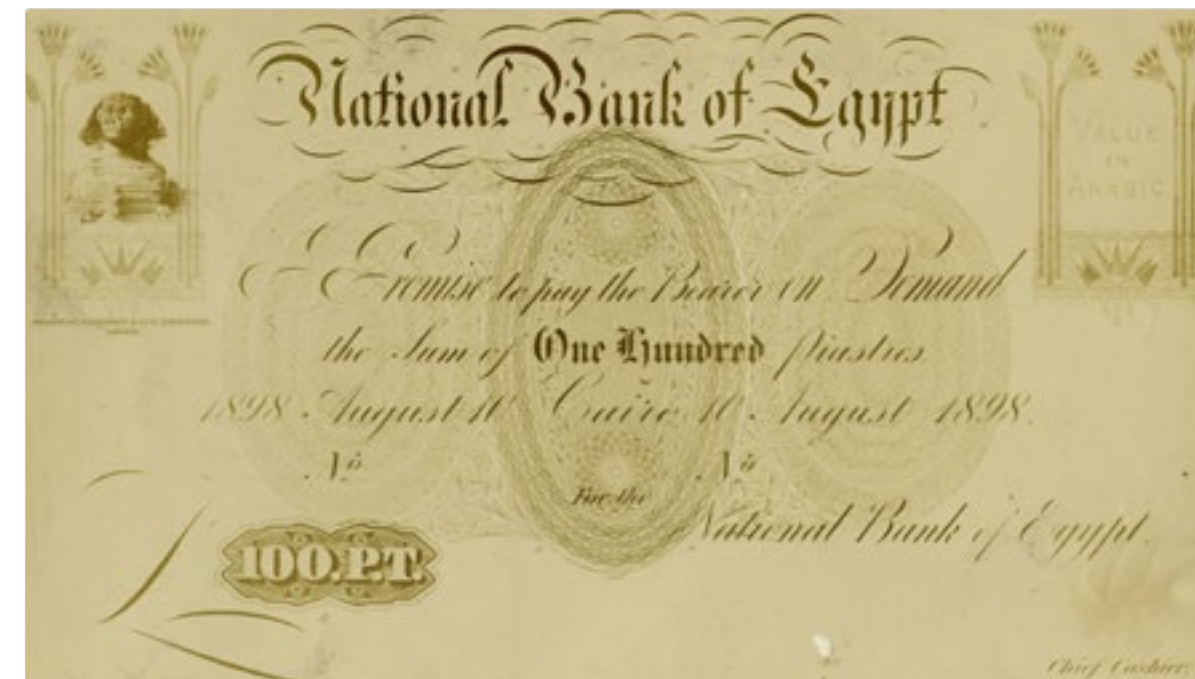 National Bank of Egypt
VALUE
IN
ARABIC
I Promise to pay the Bearer on Demand
the Sum of One Hundred Piastres
1898 August 10 Cairo 10 August 1898.
No No
For the
National Bank of Egypt.
100.P.T.
Chief Cashier.